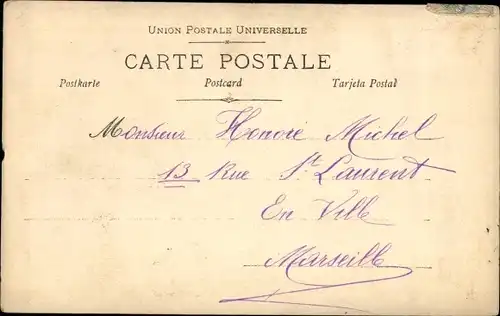 UNION POSTALE UNIVERSELLE
CARTE POSTALE
Postkarte Postcard Tarjeta Postal
Monsieur Honoré Michel
13 Rue St Laurent
En Ville
Marseille